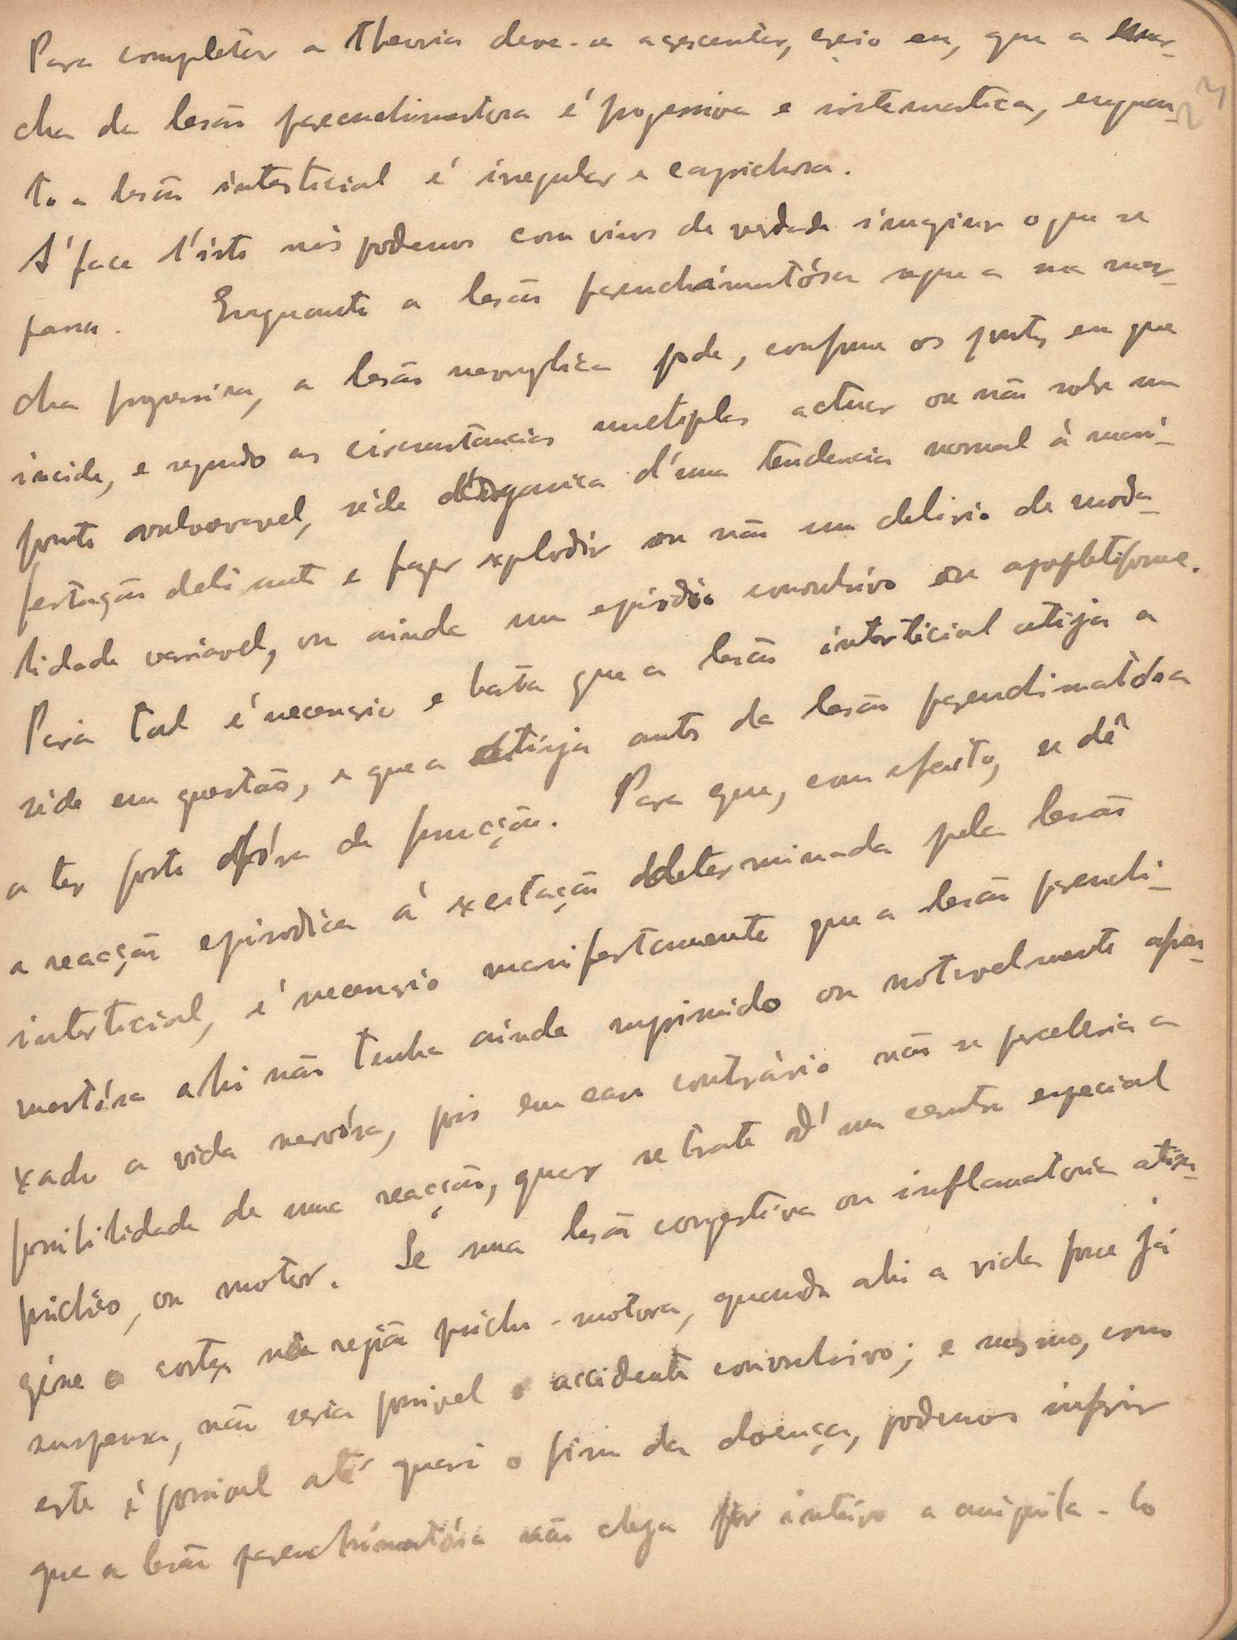 Para completar a theoria deve-se acrescentar, creio eu, que a mar-
cha da lesão parenchimatosa é progressiva e sistematica, enquan-
to a lesão intersticial é irregular e caprichosa.
Á face d'isto nós podemos com visos de verdade imaginar o que se
passa. Enquanto a lesão parenchimatósa segue a sua mar-
cha progressiva, a lesão neoroglica pode, conforme os pontos em que
incide, e segundo as circunstancias multiplas actuar ou não sobre um
ponto vulneravel, séde organica d'uma tendencia normal à mani-
festação delirante e fazer explodir ou não um delirio de moda-
lidade variavel, ou ainda um episodio convulsivo ou apopletiforme.
Para tal é necessario e basta que a lesão intersticial atija a
séde em questão, e que a atinja antes da lesão parenchimatósa
a ter posto fóra de funcção. Para que, com efeito, se dê
a reacção episodica á excitação determinada pela lesão
intersticial, é necessario manifestamente que a lesão parenchi-
matósa ahi não tenha ainda suprimido ou notavelmente abai-
xado a vida nervósa, pois em caso contrário não se perceberia a
possibilidade de uma reacção, quer se trate d'um centro especial
psichico, ou motor. Se uma lesão congestiva ou inflamatoria atin-
gisse o cortex na região psicho-motora, quando ahi a vida fosse já
suspensa, não seria possivel o accidente convulsivo; e mesmo, como
este é possivel até quasi o fim da doença, podemos inferir
que a lesão parenchimatósa não chega por inteiro a aniquila-lo
24